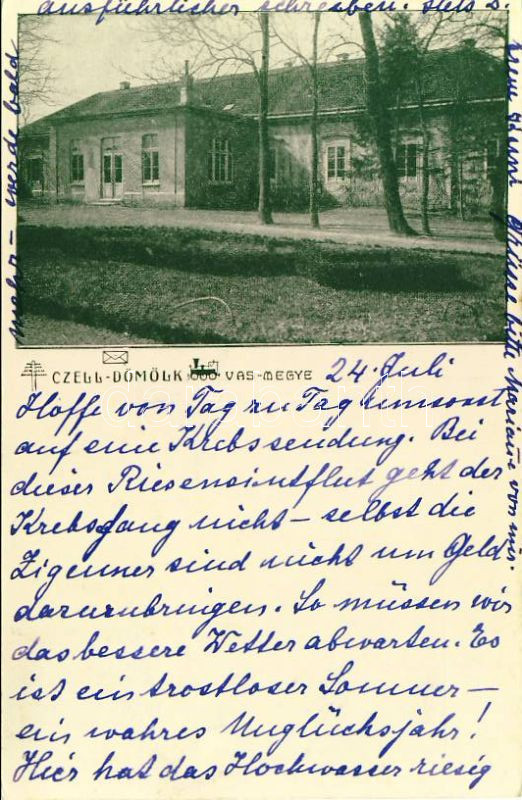 CZELL-DÖMÖLK VAS-MEGYE 24. Juli
Hoffe von Tag zu Tag umsonst
auf eine Krebssendung. Bei
dieser Riesensintflut geht der
Krebsfang nicht – selbst die
Zigeuner sind nicht um Geld
daranzubringen. So müssen wir
das bessere Wetter abwarten. Es
ist ein trostloser Sommer –
ein wahres Unglücksjahr!
Hier hat das Hochwasser riesig
mehr – werde bald
ausführlicher schreiben. Stets
bitte von mir.